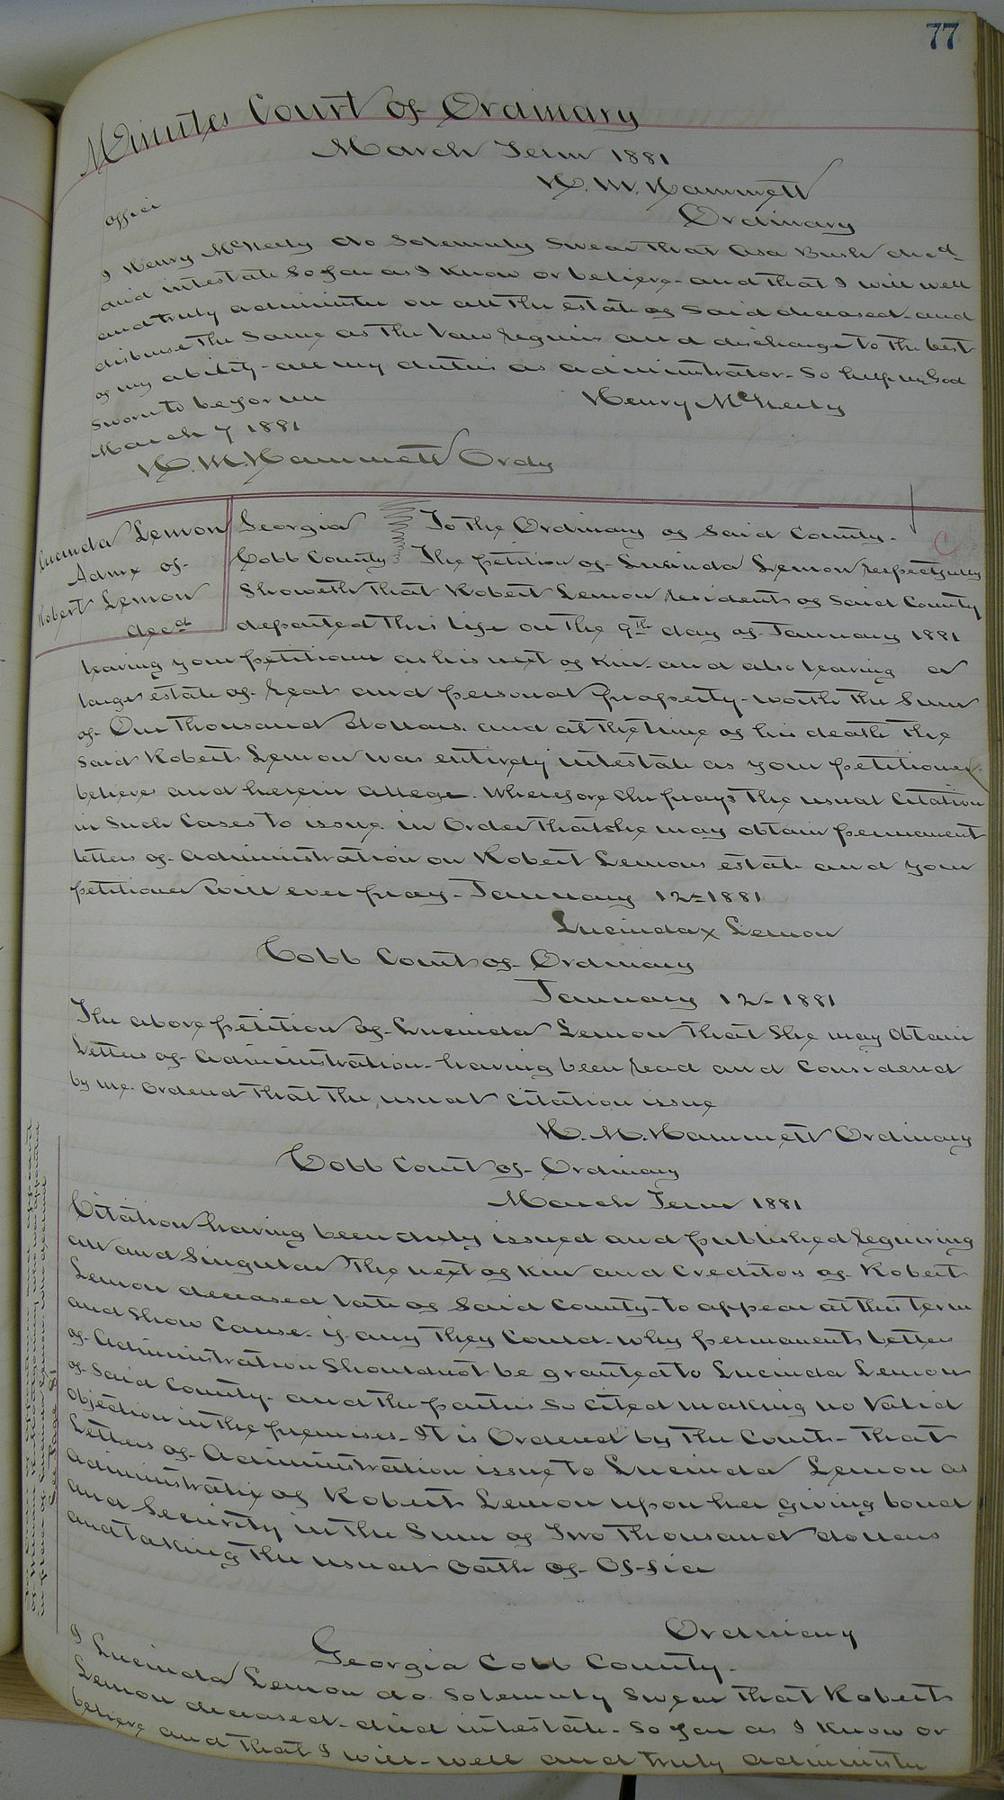 77
Minutes Court of Ordinary
March Term 1881
H. M. Hammett
Ordinary
office
I Henry McNeely do Solemnly Swear that Asa Bush decd
died intestate So far as I know or believe and that I will well
and truly administer on all the estate of Said deceased and
disburse the Same as the law requires and discharge to the best
of my ability all my duties as administrator. So help my God
Sworn to before me
Henry McNeely
March 7 1881
H. M. Hammett Ordy
Lucinda Lemon
Admx of
Robert Lemon
decd
Georgia To the Ordinary of Said County.
C
Cobb County The petition of Lucinda Lemon respectfully
Showeth that Robert Lemon resident of Said County
departed this life on the 9th day of January 1881
leaving your petitioner as his next of kin and also leaving a
large estate of real and personal property worth the Sum
of One thousand dollars. and at the time of his death the
Said Robert Lemon was entirely intestate as your petitioner
believes and herein allege. Wherefore She prays the usual Citation
in Such Cases to issue in Order that she may obtain permanent
letters of administration on Robert Lemons estate and your
petitioner will ever pray - January 12 - 1881
Lucinda x Lemon
Cobb Court of Ordinary
January 12 - 1881
The above petition of Lucinda Lemon that She may Obtain
Letters of administration having been read and Considered
by me. Ordered that the usual Citation issue
H. M. Hammett Ordinary
Cobb Court of Ordinary
March Term 1881
Citation having been duly issued and published requiring
all and Singular the next of kin and Creditors of Robert
Lemon deceased late of Said County to appear at this term
and Show Cause if any they Could why permanent letters
of administration Should not be granted to Lucinda Lemon
of Said County. and the parties So cited making no Valid
objection in the premises - It is Ordered by the Court - that
Letters of Administration issue to Lucinda Lemon as
administratix of Robert Lemon upon her giving bond
and Security in the Sum of Two thousand dollars
and taking the usual Oath of Office
Ordinary
Georgia Cobb County.
I Lucinda Lemon do Solemnly Swear that Robert
Lemon deceased died intestate - So far as I know or
believe and that I will well and truly administer
See Page 81